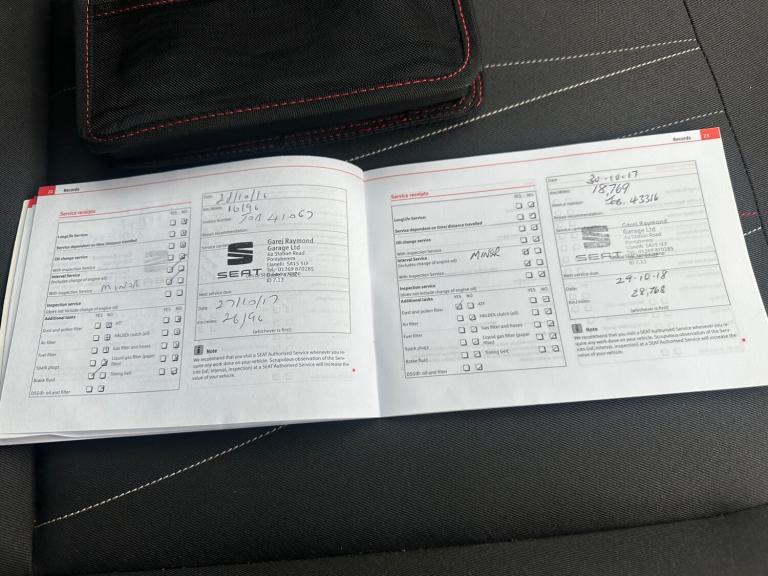 22 Records
Service receipts
YES NO
LongLife Service:
Service dependent on time/distance travelled
Oil change service
With inspection Service
Interval Service
(includes change of engine oil)
MINOR
With inspection Service
Inspection service
(does not include change of engine oil)
Additional tasks YES NO YES NO
Dust and pollen filter ATF
Air filter HALDEX clutch (oil)
Fuel filter Gas filter and hoses
Spark plugs Liquid gas filter (paper filter)
Brake fluid Timing belt
DSG®: oil and filter
Date:
Km/miles: 16196
Invoice number JOB 41067
Repair recommendation:
Service carried
SEAT
Garej Raymond
Garage Ltd
4a Station Road
Pontyberem
Llanelli SA15 5LF
Tel: 01269 870285
Next service due:
Date: 27/10/17
Km/miles: 26196
(whichever is first)
Note
We recommend that you visit a SEAT Authorised Service whenever you require any work done on your vehicle. Scrupulous observation of the Services (oil, interval, inspection) at a SEAT Authorised Service will increase the value of your vehicle.
Records 23
Service receipts
YES NO
LongLife Service:
Service dependent on time/distance travelled
Oil change service
With inspection Service
Interval Service
(includes change of engine oil)
MINOR
With inspection Service
Inspection service
(does not include change of engine oil)
Additional tasks YES NO YES NO
Dust and pollen filter ATF
Air filter HALDEX clutch (oil)
Fuel filter Gas filter and hoses
Spark plugs Liquid gas filter (paper filter)
Brake fluid Timing belt
DSG®: oil and filter
Date: 30-10-17
Km/miles: 18,769
Invoice number Job. 43316
Repair recommendation:
SEAT
Garej Raymond
Garage Ltd
4a Station Road
Pontyberem
Llanelli SA15 5LF
Tel: 01269 870285
Next service due:
Date: 29-10-18
Km/miles: 28,768
(whichever is first)
Note
We recommend that you visit a SEAT Authorised Service whenever you require any work done on your vehicle. Scrupulous observation of the Services (oil, interval, inspection) at a SEAT Authorised Service will increase the value of your vehicle.